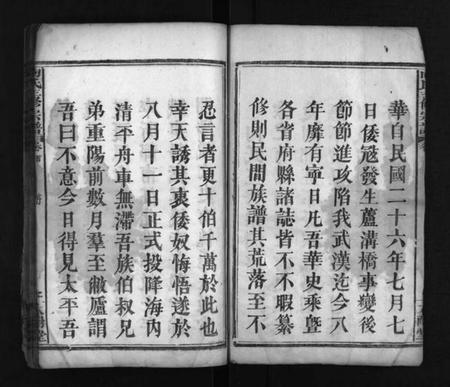 華自民國二十六年七月七
日倭寇發生蘆溝橋事變後
節節進攻陷我武漢迄今八
年靡有寧日凡吾華史乘曁
各省府縣諸誌皆不暇纂
修則民間族譜其荒落至不
忍言者更十伯千萬於此也
幸天誘其衷倭奴悔悟遂於
八月十一日正式投降海內
清平舟車無滯吾族伯叔兄
弟重陽前數月羣至敝廬謂
吾曰不意今日得見太平吾